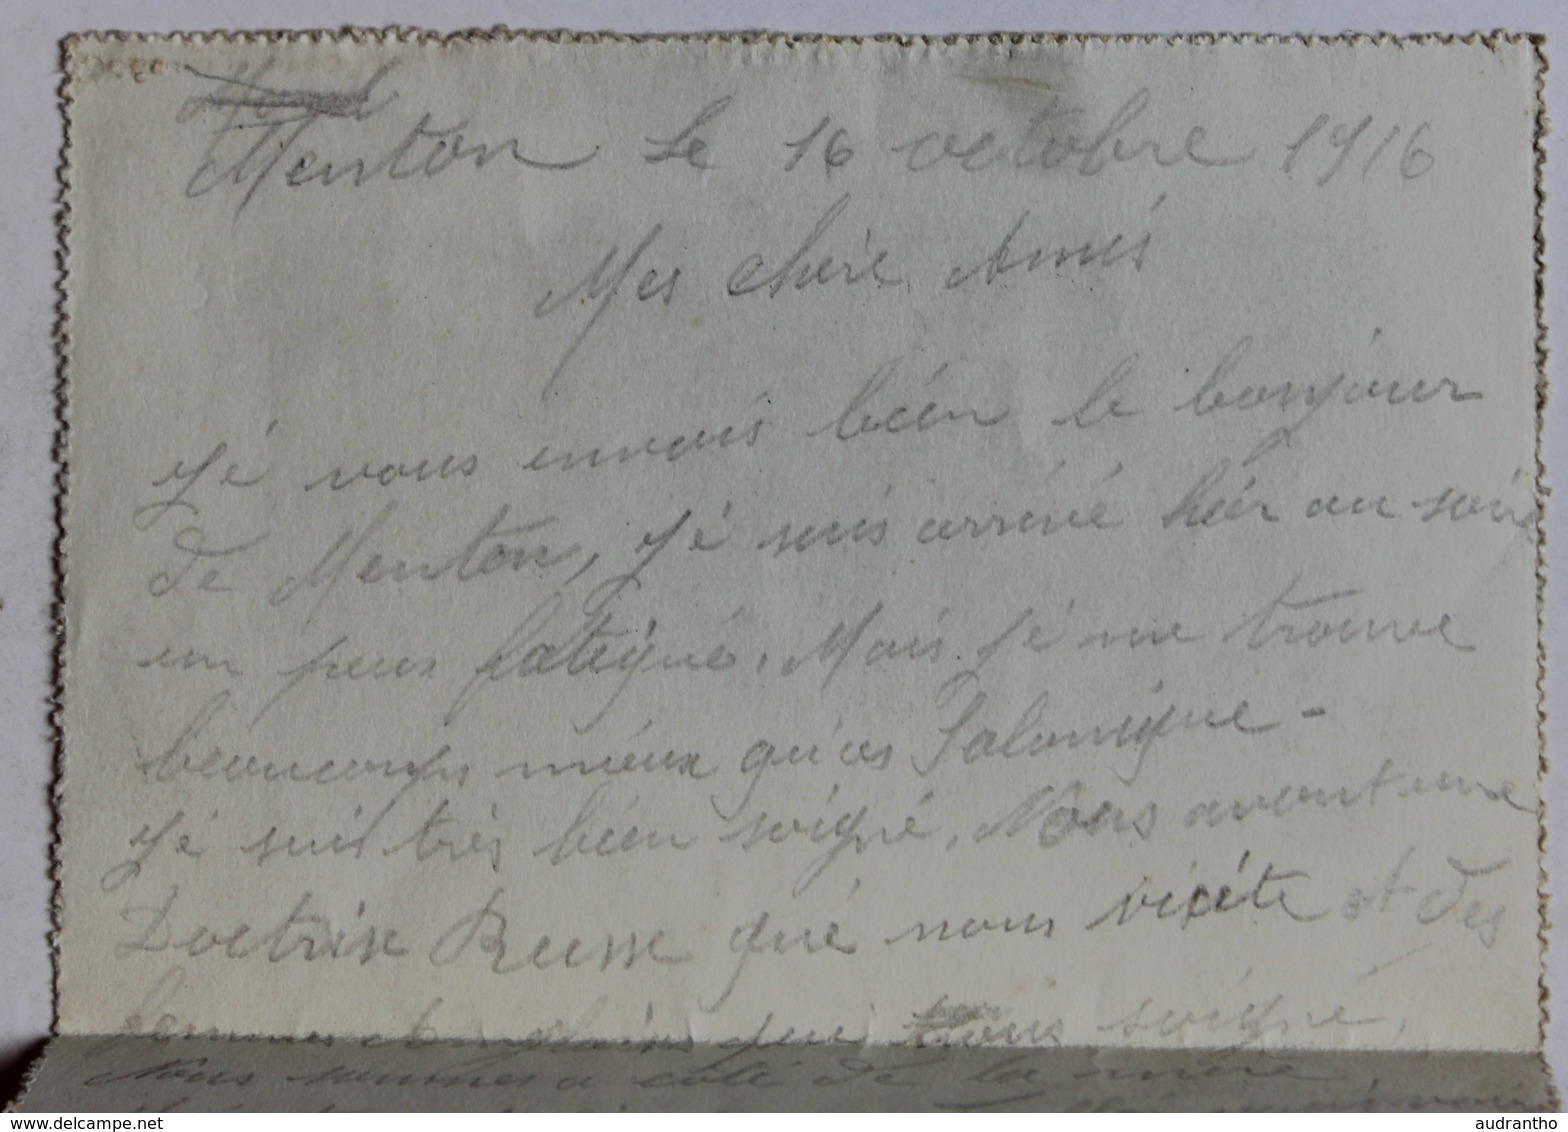 Menton le 16 octobre 1916
Mes chère Amis
Jé vous envois bién le bonjour
de Menton, Jé suis arrivé hiér au soir
un peus fatigué. Mais jé me trouve
beaucoups miéux qu'as Salonique -
Jé suis très bién soigné. Nous avont une
Doctrise Russe qué nous visite et des
femmes qui nous soigné,
Nous sommes a coté de la mère
audrantho